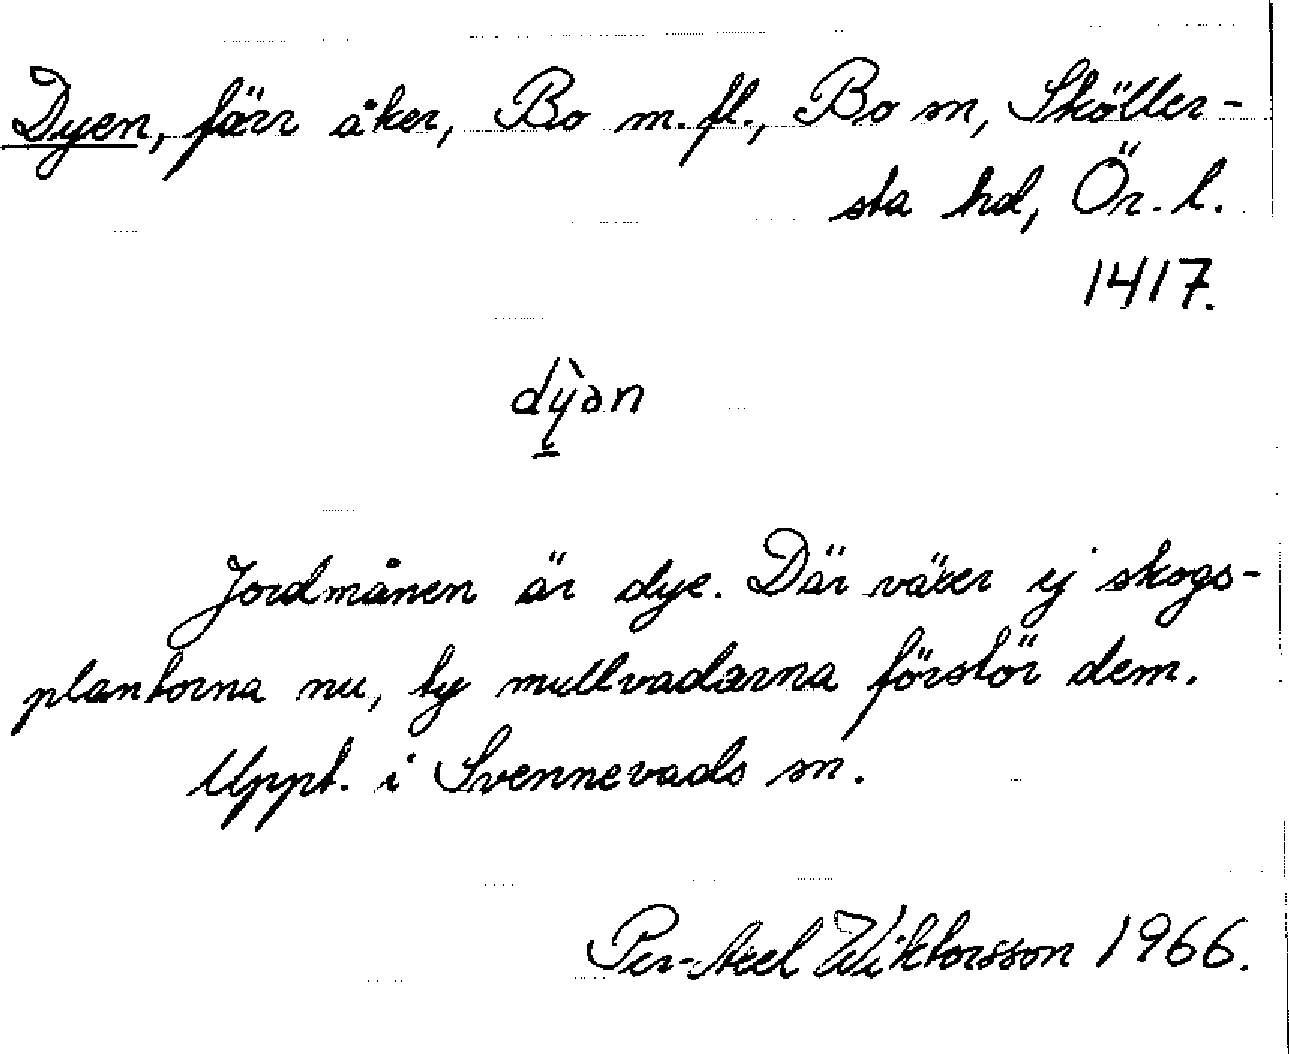 Dyen, förr åker, Bo m.fl., Bo sn, Sköller-
sta hd, Ör. l.
1417.
dỳən
Jordmånen är dye. Där växer ej skogs-
plantorna nu, ty mullvadarna förstör dem.
Uppt. i Svennevads sn.
Per-Axel Wiktorsson 1966.